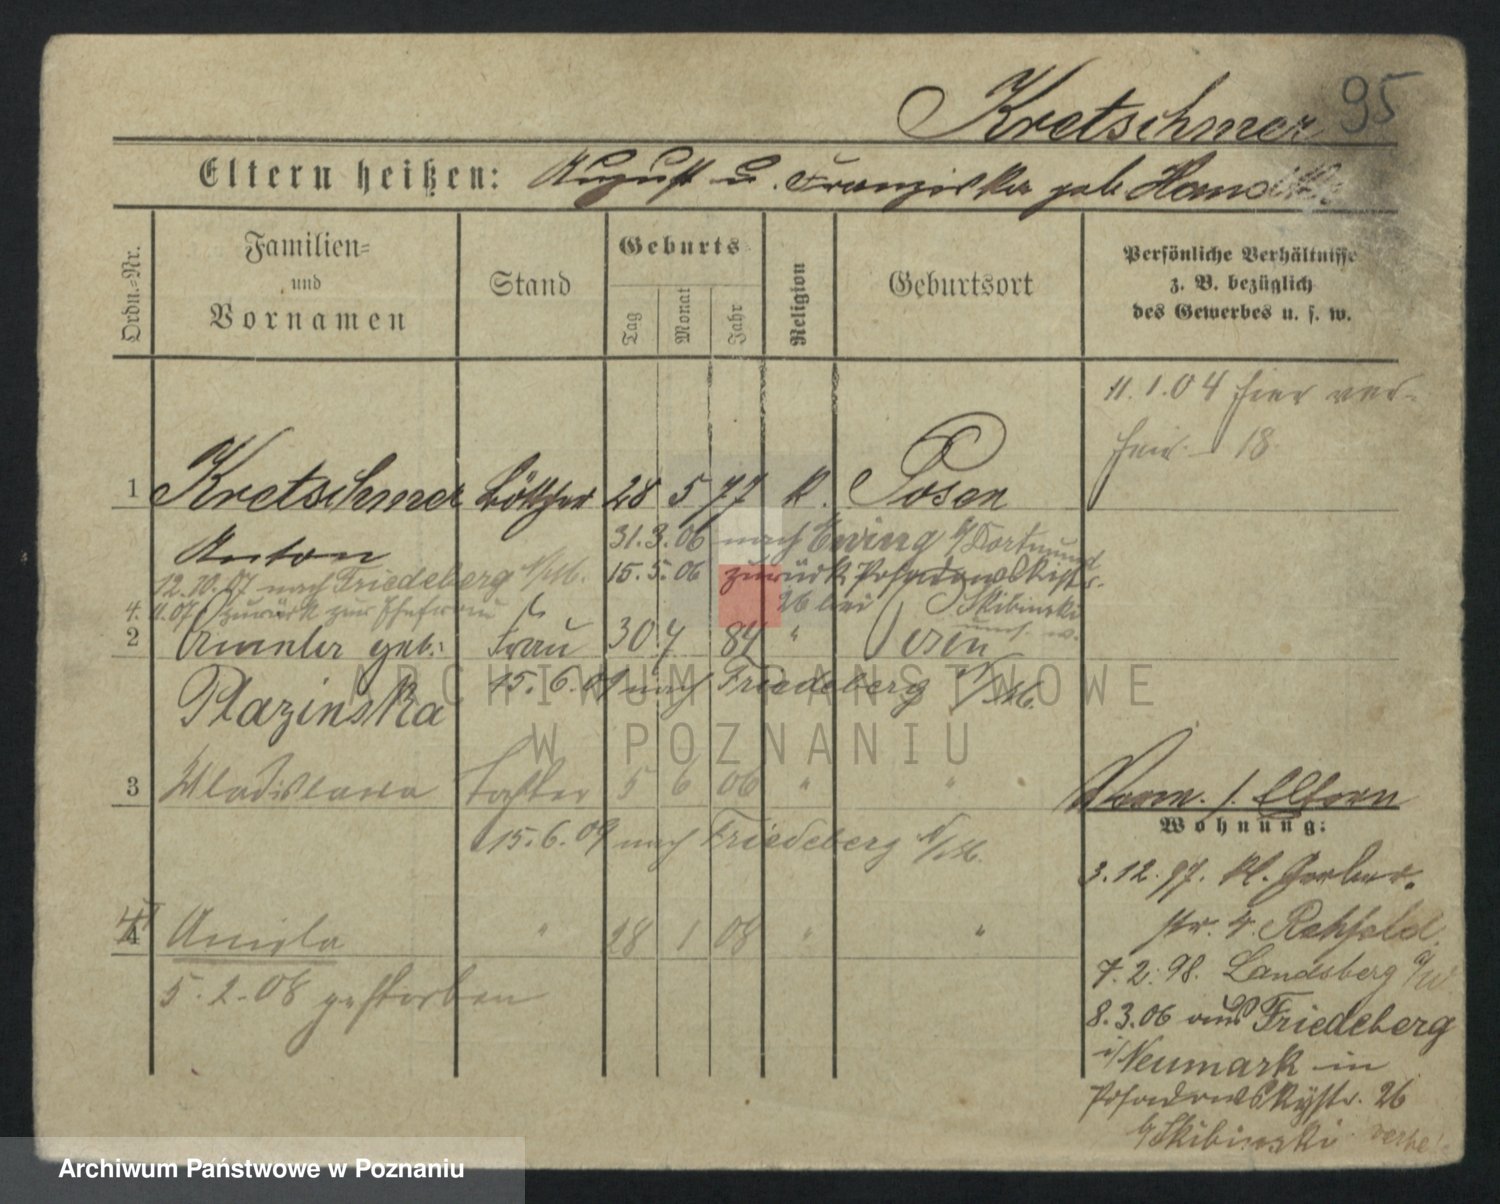 Kretschmer 95
Eltern heißen: August u. Franziska geb.
Ordn.=Nr.
Familien=
und
Vornamen
Stand
Geburts
Tag
Monat
Jahr
Religion
Geburtsort
Persönliche Verhältnisse
z. B. bezüglich
des Gewerbes u. s. w.
11.1.04 hier ver-
18.
1 Kretschmer Böttcher 28 5 77 k. Posen
Anton
31.3.06 nach Eving b/Dortmund
12.10.07 nach Friedeberg N/M.
15.5.06 zurück Posadowskistr.
4. 11.07 zurück zur Ehefrau
26 bei Skibinski
2 geb. Frau 30 7 84 " Posen
15.6.09 nach Friedeberg N/M.
Plazinska
3 Wladislawa Tochter 5 6 06 " "
15.6.09 nach Friedeberg N/M.
4 Aniela " 28 1 08 " "
5.2.08 gestorben
Eltern
Wohnung:
3.12.97. Kl. Gerber-
str. 4. Rehfeld.
7.2.98. Landsberg a/W.
8.3.06 aus Friedeberg
i/Neumark in
Posadowskystr. 26
b/Skibinski
ARCHIWUM PAŃSTWOWE
W POZNANIU
Archiwum Państwowe w Poznaniu